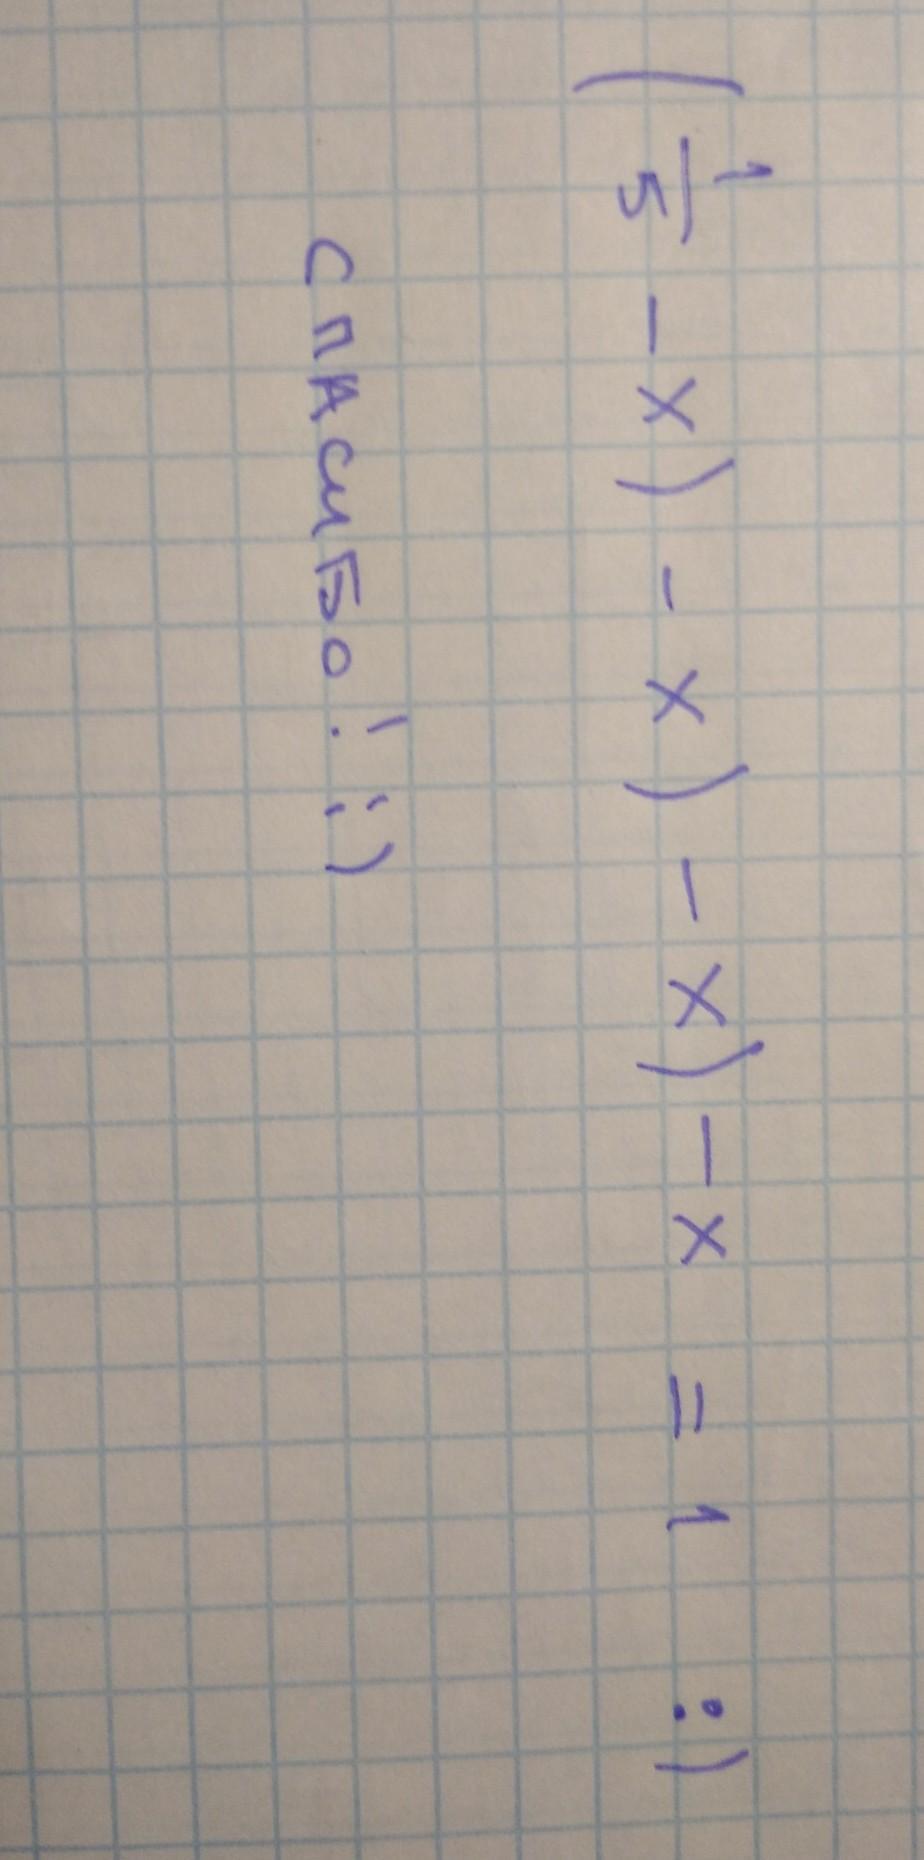 ( 1/5 - x) - x) - x) - x = 1 :)
СПАСИБО! :)